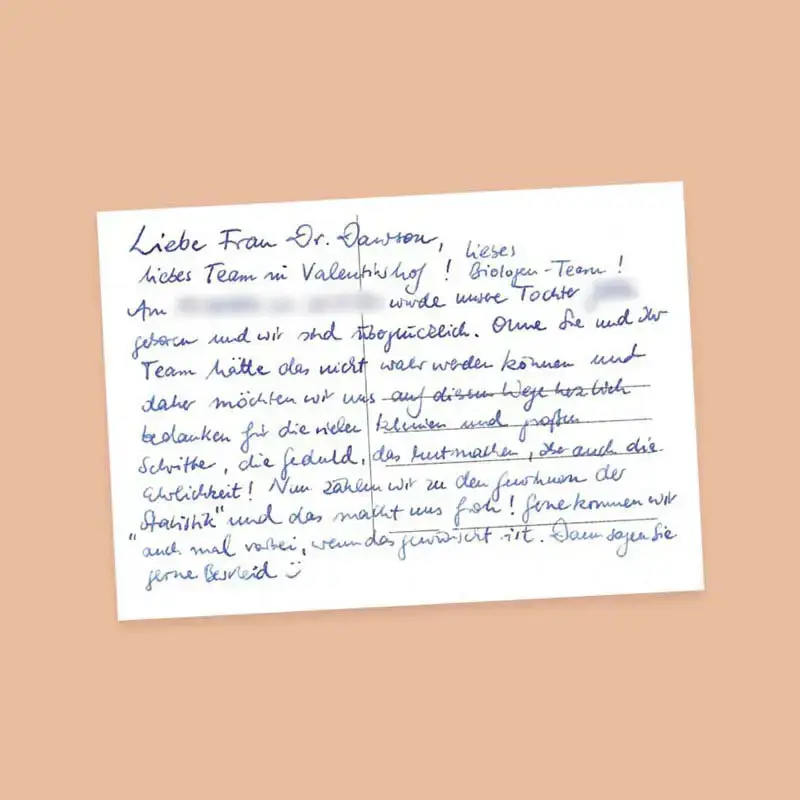 Liebe Frau Dr. Dawson,
liebes Team in Valentinshof ! liebes Biologen-Team !
Am wurde unsere Tochter
geboren und wir sind überglücklich. Ohne Sie und Ihr
Team hätte das nicht wahr werden können und
daher möchten wir uns auf diesem Wege herzlich
bedanken für die vielen kleinen und großen
Schritte, die Geduld, das Mutmachen, aber auch die
Ehrlichkeit! Nun zählen wir zu den Gewinnern der
"Statistik" und das macht uns froh! Gerne kommen wir
auch mal vorbei, wenn das gewünscht ist. Dann sagen Sie
gerne Bescheid :)